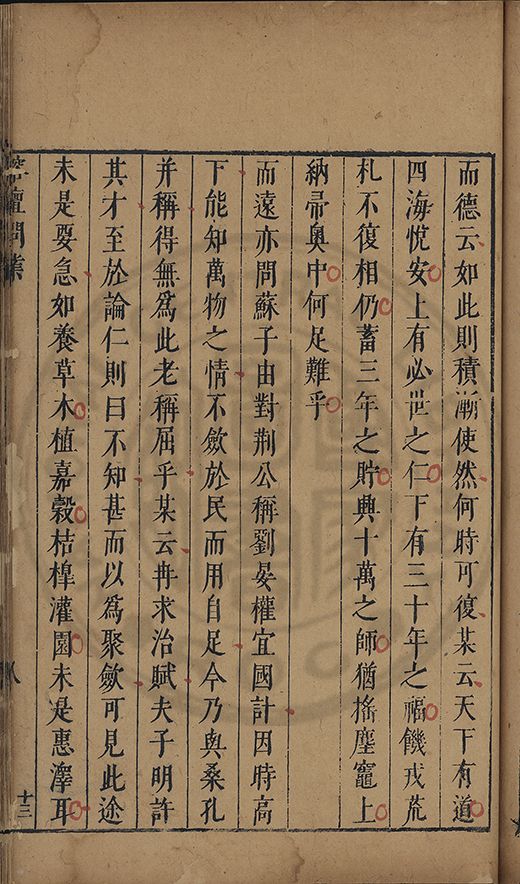 而德云如此則積漸使然何時可復某云天下有道
四海悅安上有必世之仁下有三十年之福饑戎荒
札不復相仍蓄三年之貯興十萬之師猶搖塵竈上
納帚奧中何足難乎
而遠亦問蘇子由對荆公稱劉晏權宜國計因時高
下能知萬物之情不斂於民而用自足今乃與桑孔
并稱得無為此老稱屈乎某云冉求治賦夫子明許
其才至於論仁則曰不知甚而以為聚斂可見此途
未是要急如養草木植嘉榖桔槹灌園未是惠澤耳
壇問業
八
十三